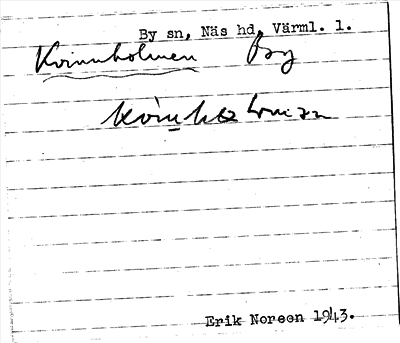 By sn, Näs hd, Värml. l.
Kvinnholmen By
Erik Noreen 1943.